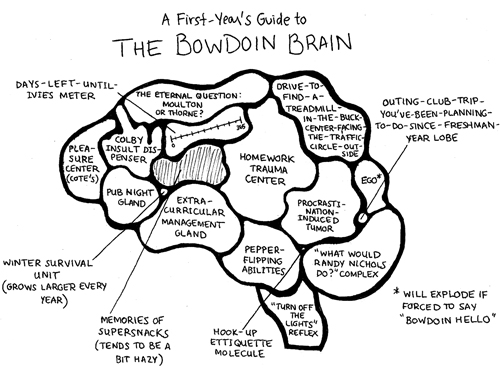 A First-Year's Guide to
THE BOWDOIN BRAIN
DAYS-LEFT-UNTIL-
IVIES METER
THE ETERNAL QUESTION:
MOULTON
OR THORNE?
0
365
DRIVE-TO-
FIND-A-
TREADMILL-
IN-THE-BUCK-
CENTER-FACING-
THE-TRAFFIC-
CIRCLE-OUT-
SIDE
OUTING-CLUB-TRIP-
YOU'VE-BEEN-PLANNING-
TO-DO-SINCE-FRESHMAN-
YEAR LOBE
COLBY
INSULT DIS-
PENSER
PLEA-
SURE
CENTER
(COTE'S)
HOMEWORK
TRAUMA
CENTER
EGO*
PUB NIGHT
GLAND
EXTRA-
CURRICULAR
MANAGEMENT
GLAND
PROCRASTI-
NATION-
INDUCED
TUMOR
WINTER SURVIVAL
UNIT
(GROWS LARGER EVERY
YEAR)
PEPPER-
FLIPPING
ABILITIES
"WHAT WOULD
RANDY NICHOLS
DO?" COMPLEX
MEMORIES OF
SUPERSNACKS
(TENDS TO BE A
BIT HAZY)
HOOK-UP
ETTIQUETTE
MOLECULE
"TURN OFF
THE
LIGHTS"
REFLEX
* WILL EXPLODE IF
FORCED TO SAY
"BOWDOIN HELLO"